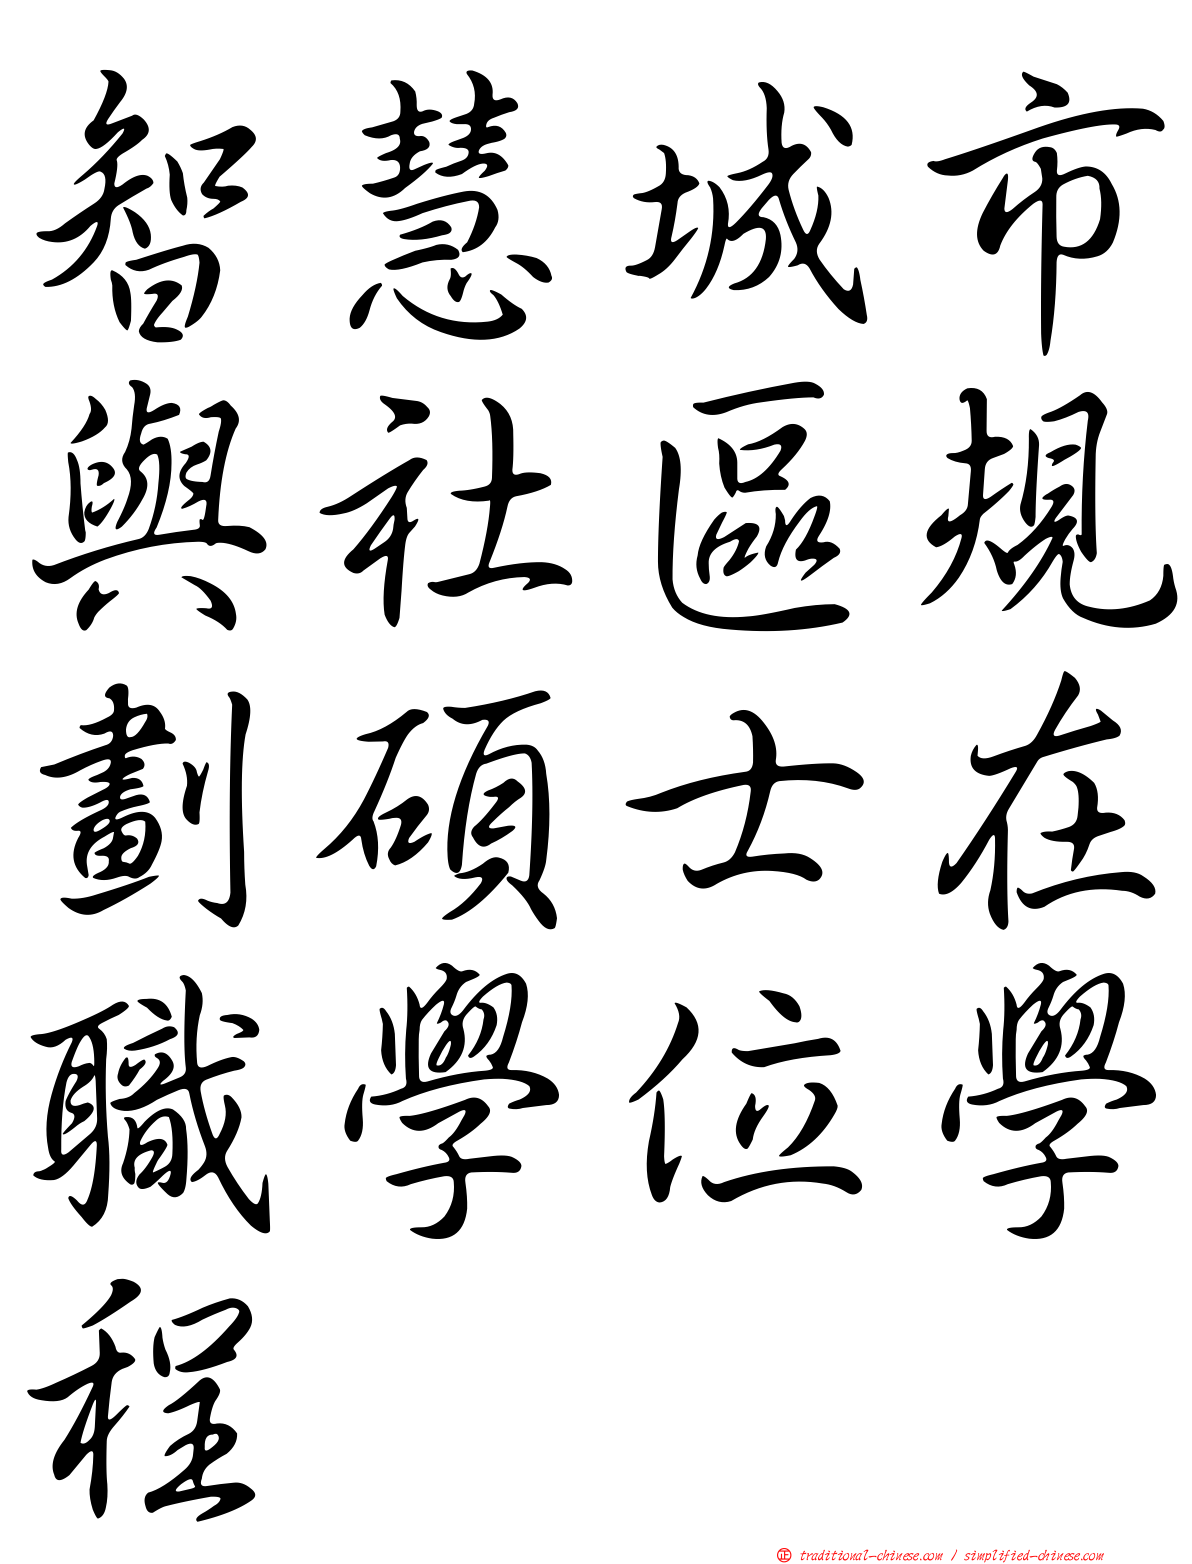 智慧城市
與社區規
劃碩士在
職學位學
程
㊣ traditional-chinese.com / simplified-chinese.com